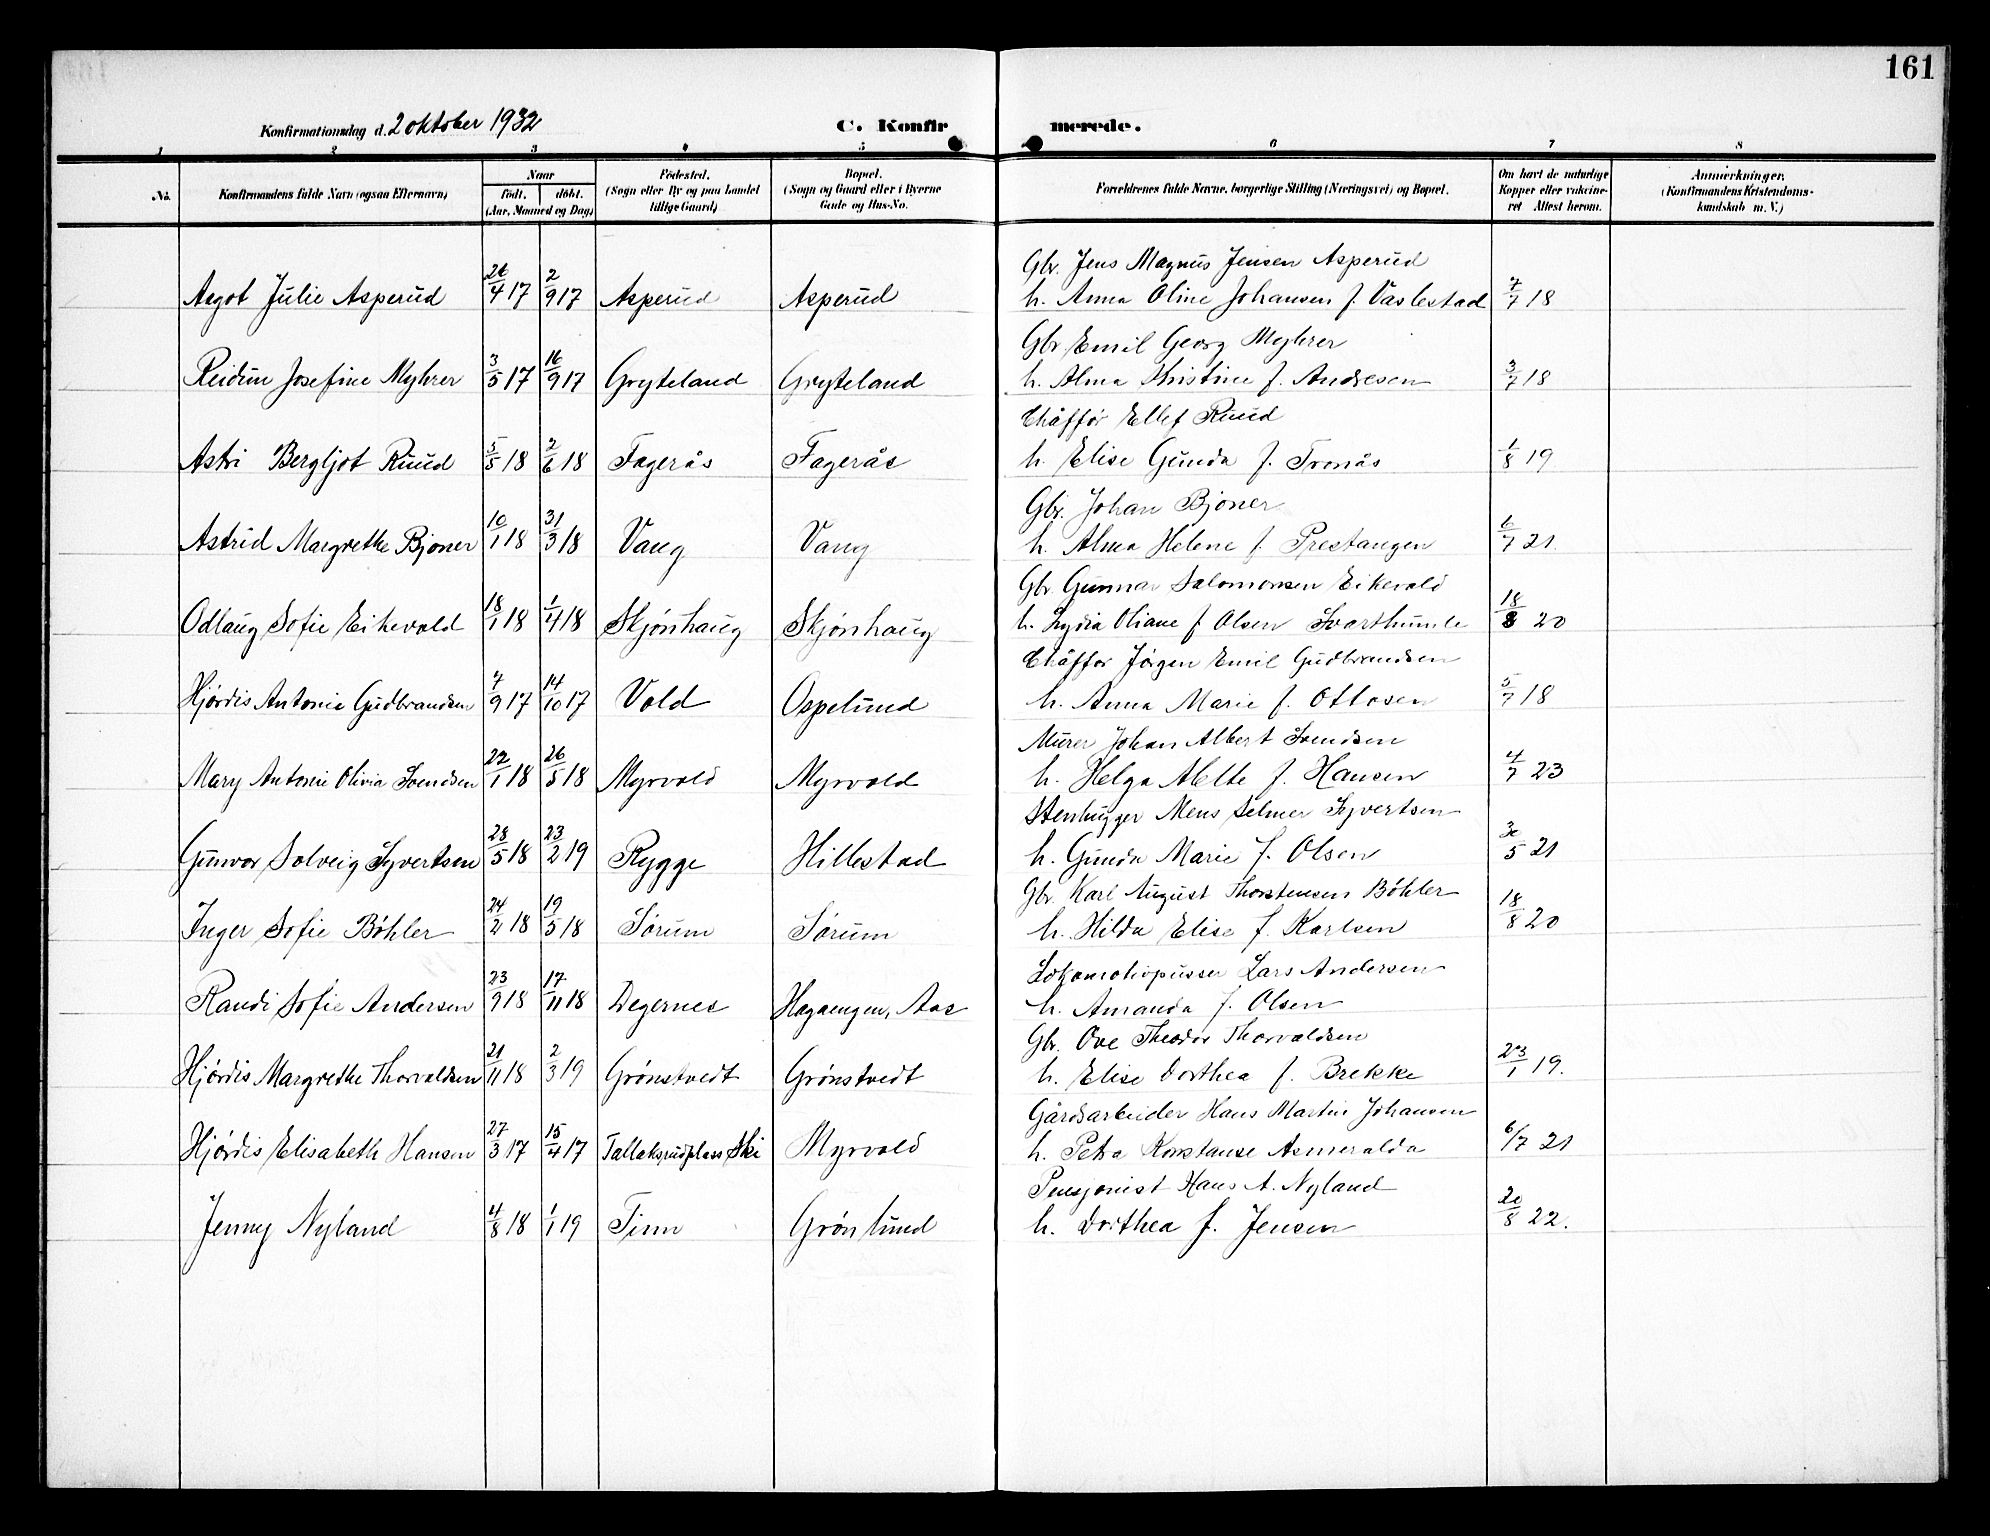 161
Konfirmationsdag d. 2 oktober 1932
C. Konfirmerede.
1 2 3 4 5 6 7 8
No.
Konfirmandens fulde Navn (ogsaa Efternavn)
Naar
födt, döbt.
(Aar, Maaned og Dag)
Födested.
(Sogn eller By og paa Landet
tillige Gaard)
Bopæl.
(Sogn og Gaard eller i Byerne
Gade og Hus-No.
Forældrenes fulde Navne, borgerlige Stilling (Næringsvei) og Bopæl.
Om havt de naturlige
Kopper eller vakcine-
ret Attest herom.
Anmærkninger,
(Konfirmandens Kristendoms-
kundskab m. V.)
Gbr. Jens Magnus Jensen Asperud
Aagot Julie Asperud 26/4 17 2/9 17 Asperud Asperud h. Anna Oline Johansen f. Vaslestad 7/7 18
Gbr Emil Georg Myhrer
Reidun Josefine Myhrer 3/5 17 16/9 17 Gryteland Gryteland h. Alma Kristine f. Andresen 3/7 18
Chåffør Ellef Ruud
Astri Bergljot Ruud 5/5 18 2/6 18 Fagerås Fagerås h. Elise Gunda f. Tronås 1/8 19
Gbr. Johan Bjoner
Astrid Margrethe Bjoner 10/1 18 31/3 18 Vang Vang h. Alma Helene f. Prestangen 6/7 21.
Gbr Gunnar Salomonsen Eikevold
Odlaug Sofie Eikevold 18/1 18 1/4 18 Skjønhaug Skjønhaug h. Lydia Oliane f Olsen Svarthumle 18/8 20
Chåffør Jørgen Emil Gudbrandsen
Hjørdis Antonie Gudbrandsen 7/9 17 14/10 17 Vold Ospelund h. Anna Marie f. Ottosen 5/7 18
Murer Johan Albert Svendsen
Mary Antonie Olivia Svendsen 22/1 18 26/5 18 Myrvold Myrvold h. Helga Mette f. Hansen 4/7 23
Stenhugger Mens Selmer Syvertsen
Gunvor Solveig Syvertsen 28/5 18 23/2 19 Rygge Hillestad h. Gunda Marie f. Olsen 30/5 21
Gbr Karl August Thorstensen Bøhler
Inger Sofie Bøhler 24/2 18 19/5 18 Sørum Sørum h. Hilda Elise f. Karlsen 18/8 20
Lokomotivpusser Lars Andersen
Randi Sofie Andersen 23/9 18 17/11 18 Degernes Hagaengen, Aas h. Amanda f. Olsen
Gbr. Ove Theodor Thorvaldsen
Hjørdis Margrethe Thorvaldsen 21/11 18 2/3 19 Grønstvedt Grønstvedt h. Elise Dorthea f. Brekke 23/1 19.
Gårdsarbeider Hans Martin Johansen
Hjørdis Elisabeth Hansen 27/3 17 15/4 17 Tallaksrudplass Ski Myrvold h. Petra Konstanse Asmeralda 6/7 21
Pensjonist Hans A. Nyland
Jenny Nyland 4/8 18 1/1 19 Tinn Grønlund h. Dorthea f. Jensen 20/8 22.